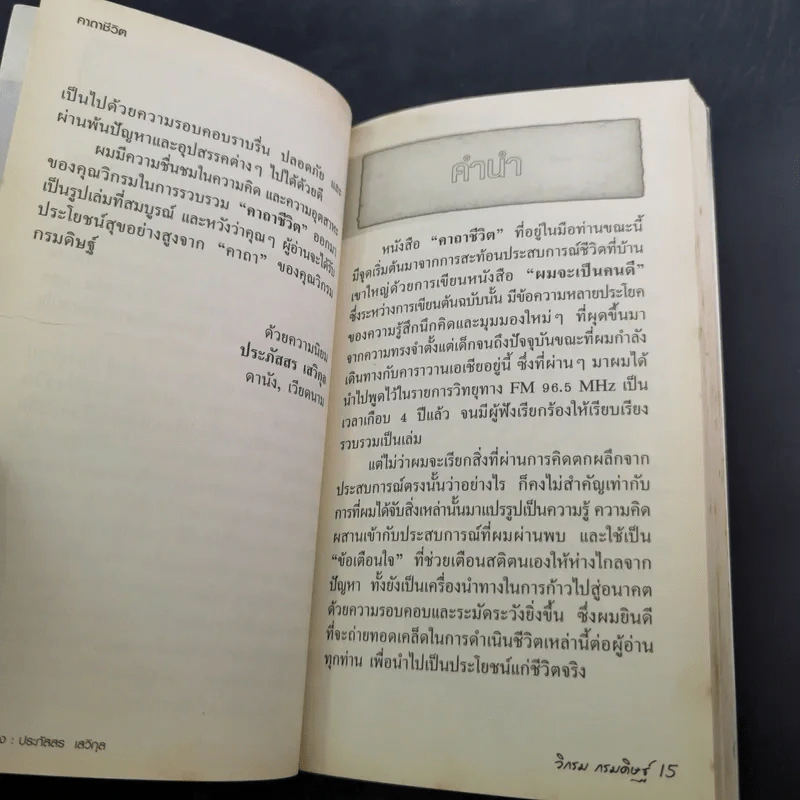 คาถาชีวิต
เป็นไปด้วยความรอบคอบราบรื่น ปลอดภัย และ
ผ่านพ้นปัญหาและอุปสรรคต่างๆ ไปได้ด้วยดี
ผมมีความชื่นชมในความคิด และความอุตสาหะ
ของคุณวิกรมในการรวบรวม “คาถาชีวิต” ออกมา
เป็นรูปเล่มที่สมบูรณ์ และหวังว่าคุณๆ ผู้อ่านจะได้รับ
ประโยชน์สุขอย่างสูงจาก “คาถา” ของคุณวิกรม
กรมดิษฐ์
ด้วยความนิยม
ประภัสสร เสวิกุล
ดานัง, เวียดนาม
: ประภัสสร เสวิกุล
คำนำ
หนังสือ “คาถาชีวิต” ที่อยู่ในมือท่านขณะนี้
มีจุดเริ่มต้นมาจากการสะท้อนประสบการณ์ชีวิตที่บ้าน
เขาใหญ่ด้วยการเขียนหนังสือ “ผมจะเป็นคนดี”
ซึ่งระหว่างการเขียนต้นฉบับนั้น มีข้อความหลายประโยค
ของความรู้สึกนึกคิดและมุมมองใหม่ๆ ที่ผุดขึ้นมา
จากความทรงจำตั้งแต่เด็กจนถึงปัจจุบันขณะที่ผมกำลัง
เดินทางกับคาราวานเอเชียอยู่นี้ ซึ่งที่ผ่านๆ มาผมได้
นำไปพูดไว้ในรายการวิทยุทาง FM 96.5 MHz เป็น
เวลาเกือบ 4 ปีแล้ว จนมีผู้ฟังเรียกร้องให้เรียบเรียง
รวบรวมเป็นเล่ม
แต่ไม่ว่าผมจะเรียกสิ่งที่ผ่านการคิดตกผลึกจาก
ประสบการณ์ตรงนั้นว่าอย่างไร ก็คงไม่สำคัญเท่ากับ
การที่ผมได้จับสิ่งเหล่านั้นมาแปรรูปเป็นความรู้ ความคิด
ผสานเข้ากับประสบการณ์ที่ผมผ่านพบ และใช้เป็น
“ข้อเตือนใจ” ที่ช่วยเตือนสติตนเองให้ห่างไกลจาก
ปัญหา ทั้งยังเป็นเครื่องนำทางในการก้าวไปสู่อนาคต
ด้วยความรอบคอบและระมัดระวังยิ่งขึ้น ซึ่งผมยินดี
ที่จะถ่ายทอดเคล็ดในการดำเนินชีวิตเหล่านี้ต่อผู้อ่าน
ทุกท่าน เพื่อนำไปเป็นประโยชน์แก่ชีวิตจริง
วิกรม กรมดิษฐ์ 15